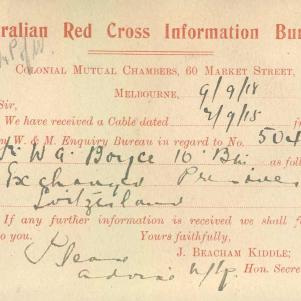 ralian Red Cross Information Bu
P/W
COLONIAL MUTUAL CHAMBERS, 60 MARKET STREET,
MELBOURNE, 9/9/18
Sir,
We have received a Cable dated 7/9/15 f
W. & M. Enquiry Bureau in regard to No. 504
W A Boyce 10 Bn as fol
Exchanged Prisoner
Switzerland
If any further information is received we shall
to you. Yours faithfully,
J. BEACHAM KIDDLE;
Please advise Hon. Secre